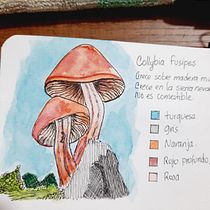 Collybia Fusipes
Crece sobre madera mu
Crece en la sierra neva
No es comestible.
turquesa
gris
Naranja
Rojo profundo
Rosa